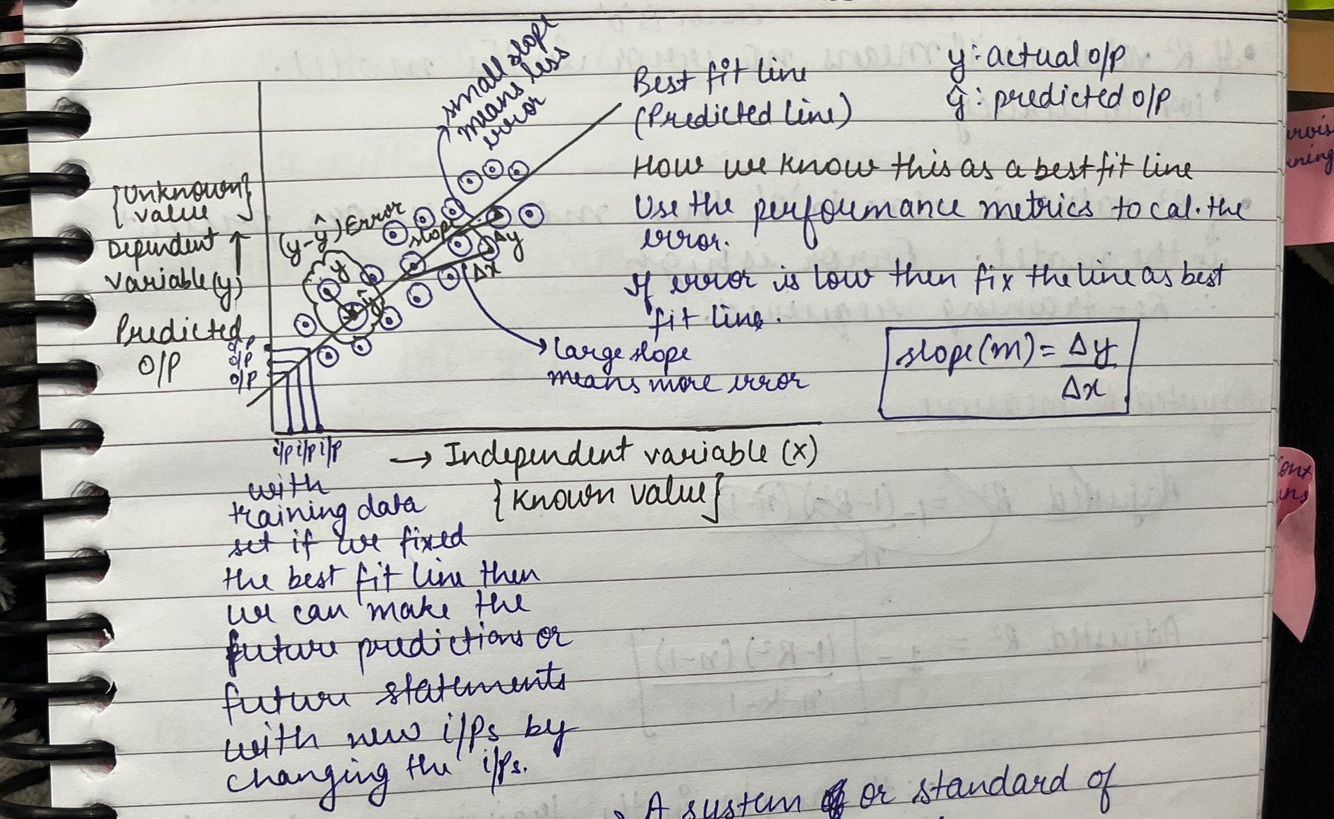 small slope
means less
error
Best fit line
(Predicted line)
y: actual O/P
ŷ: predicted O/P
How we know this as a best fit line
Use the performance metrics to cal. the
error.
If error is low then fix the line as best
fit line.
slope(m) = Δy
Δx
{Unknown}
value
Dependent
Variable(y)
Predicted
O/P
O/P
O/P
O/P
(y-ŷ) Error
y
ŷ
slope
Δy
Δx
large slope
means more error
i/p i/p i/p
→ Independent variable (x)
{Known value}
with
training data
set if we fixed
the best fit line then
we can make the
future predictions or
future statements
with new i/ps by
changing the i/ps.
A system or standard of